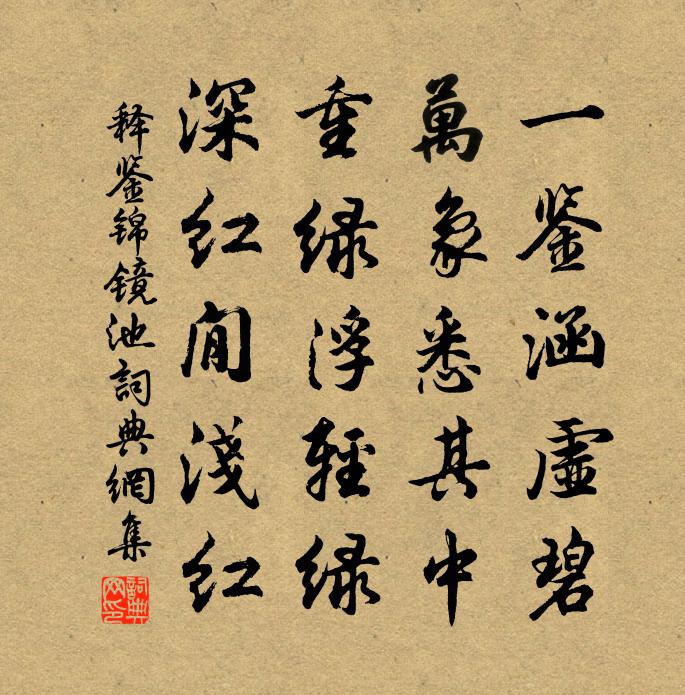 一鉴涵虛碧
萬象悉其中
重绿浮輕绿
深红閒淺红
释鉴锦镜池詞典網集
詞典網印